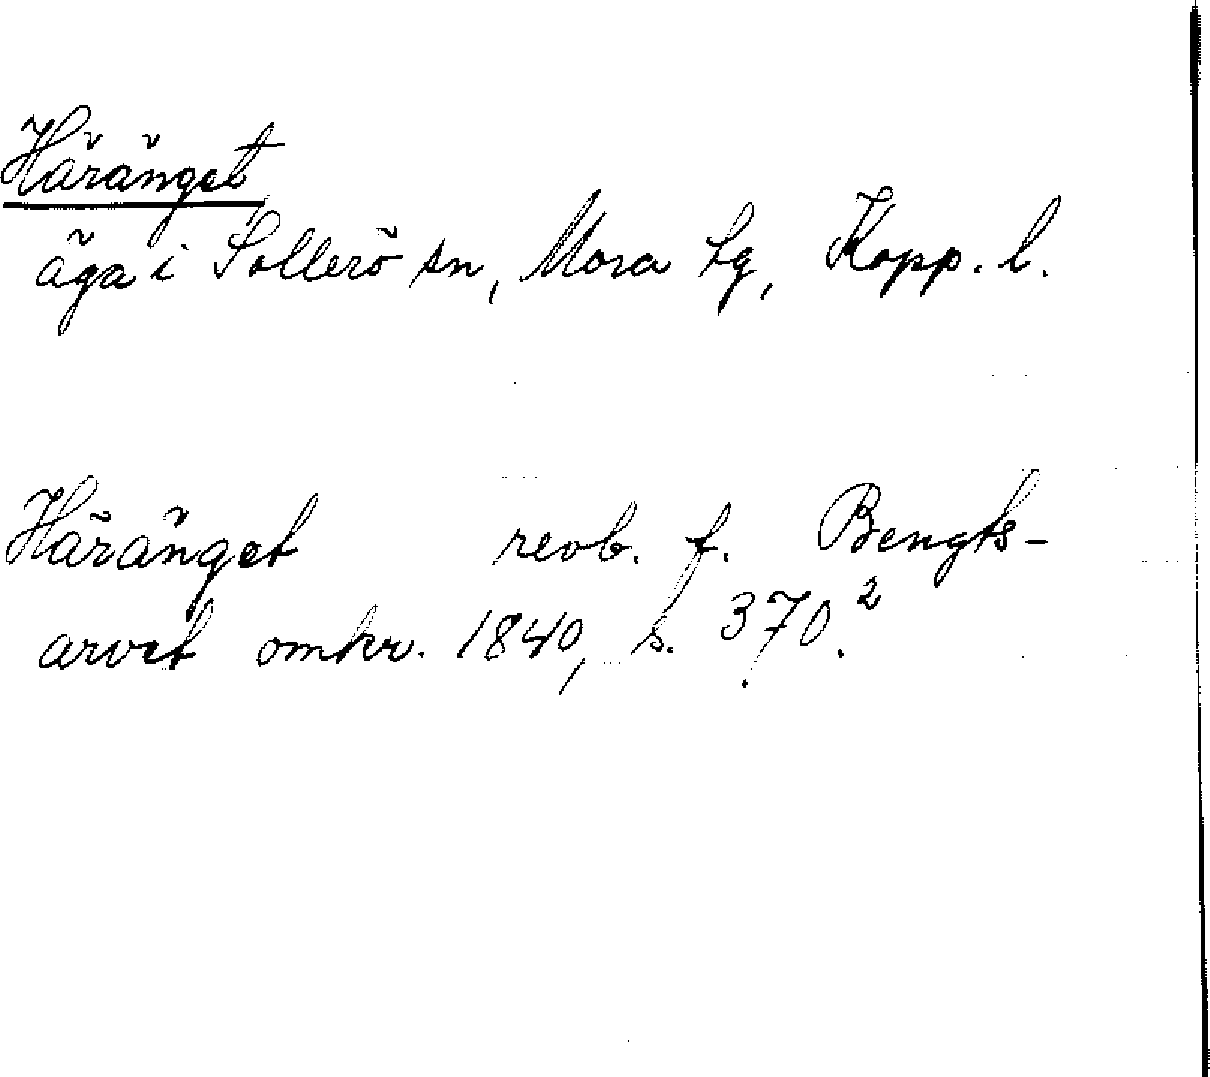 Häränget
äga i Sollerö sn, Mora tg, Kopp. l.
Häränget revb. f. Bengts-
arvet omkr. 1840, s. 370.²